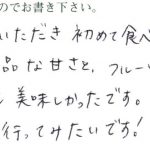 のでお書き下さい。
いただき 初めて食べ
品な甘さと、フルー
美味しかったです。
行ってみたいです!